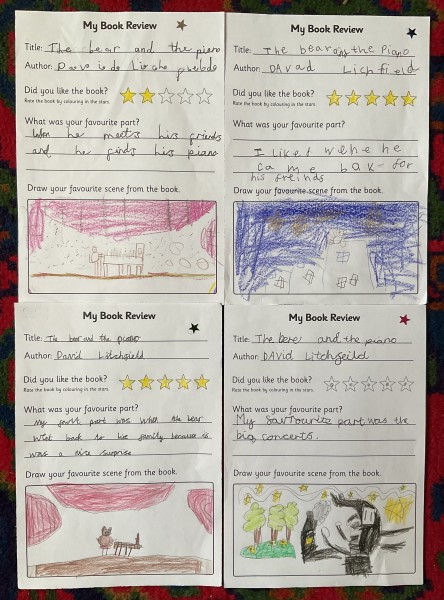 My Book Review
Title: The bear and the piano
Author:
Did you like the book?
Rate the book by colouring in the stars.
What was your favourite part?
When he meets his friends
and he finds his piano
Draw your favourite scene from the book.
My Book Review
Title: The bear and the Piano
Author: DAVad Lichfield
Did you like the book?
Rate the book by colouring in the stars.
What was your favourite part?
I liket wehe he
came bak for
his freinds
Draw your favourite scene from the book.
My Book Review
Title: The bear and the piano
Author: David Litchfield
Did you like the book?
Rate the book by colouring in the stars.
What was your favourite part?
My favrit part was when the bear
Wint back to his family because is
was a nise surprise
Draw your favourite scene from the book.
My Book Review
Title: The bere and the piano
Author: DAVid Litchfeild
Did you like the book?
Rate the book by colouring in the stars.
What was your favourite part?
My favrourite part was the
big concerts.
Draw your favourite scene from the book.